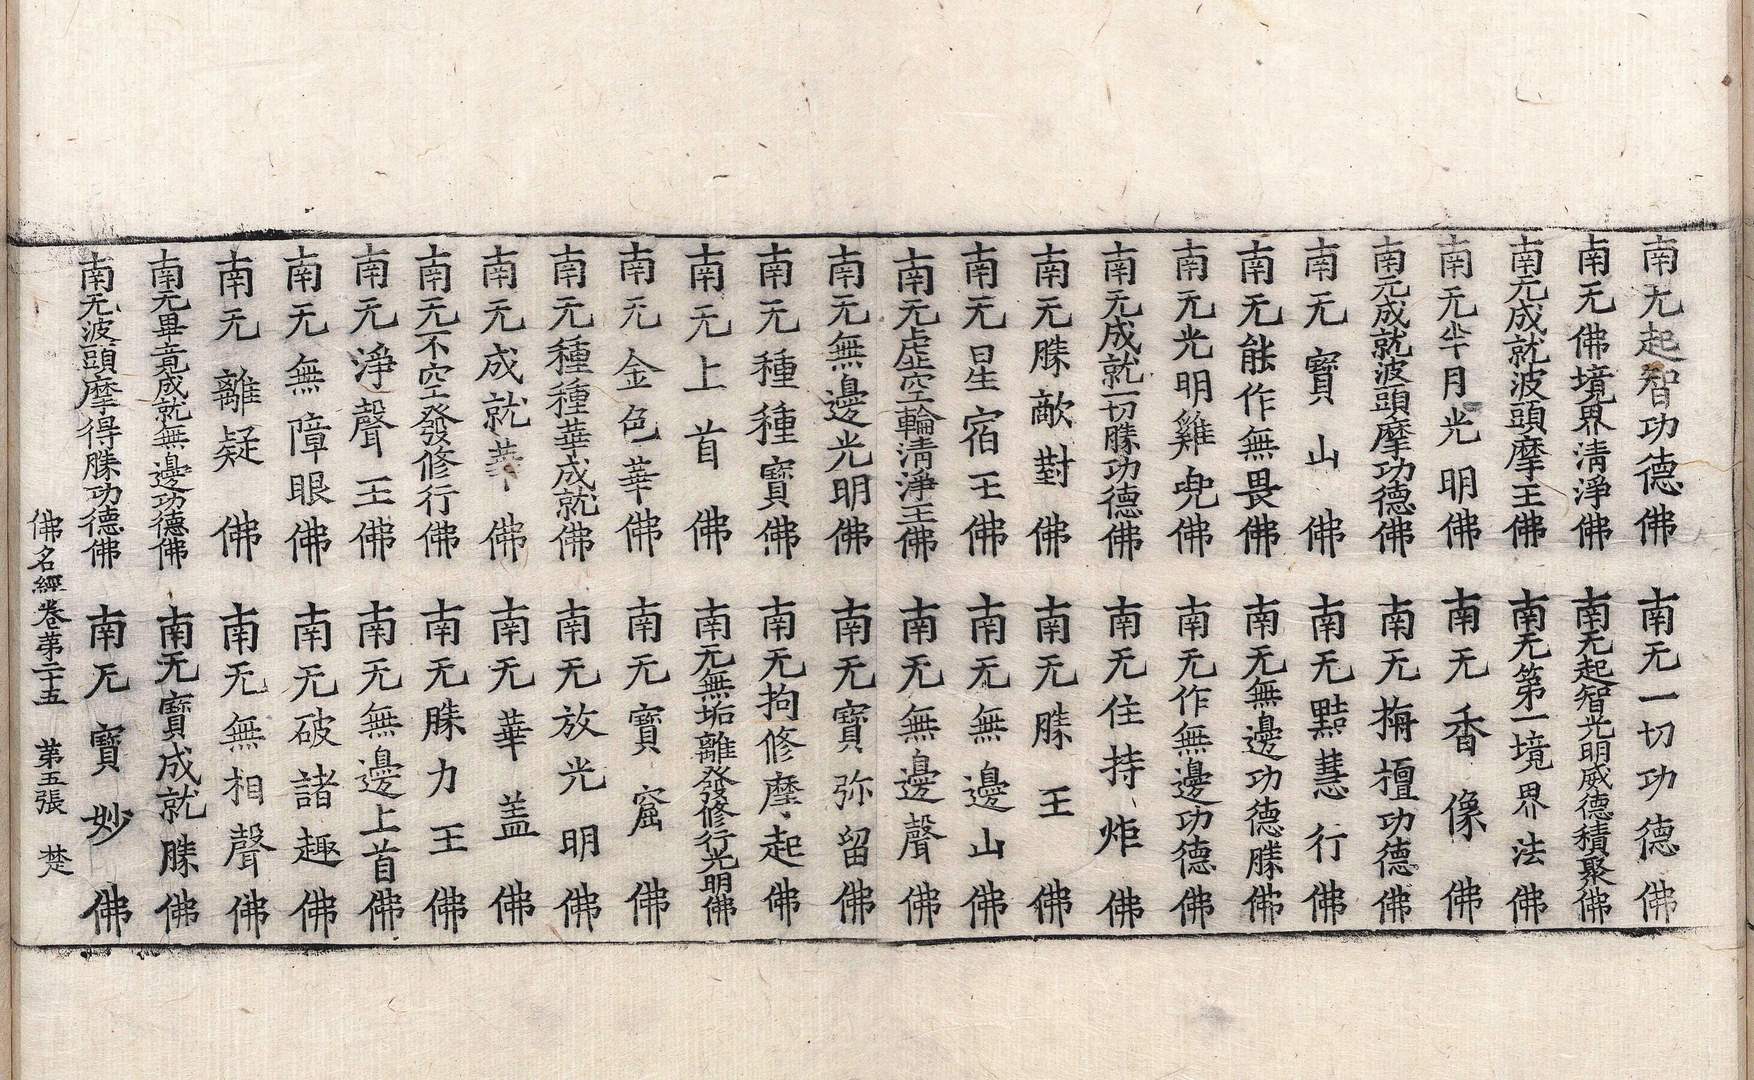 南无起智功德佛　南无一切功德佛
南无佛境界清淨佛　南无起智光明威德積聚佛
南无成就波頭摩王佛　南无第一境界法佛
南无半月光明佛　南无香像佛
南无成就波頭摩功德佛　南无栴檀功德佛
南无寶山佛　南无黠慧行佛
南无能作無畏佛　南无無邊功德勝佛
南无光明雞兜佛　南无作無邊功德佛
南无成就一切勝功德佛　南无住持炬佛
南无勝敵對佛　南无勝王佛
南无星宿王佛　南无無邊山佛
南无虛空輪清淨王佛　南无無邊聲佛
南无無邊光明佛　南无寶弥留佛
南无種種寶佛　南无拘修摩起佛
南无上首佛　南无無垢離發修行光明佛
南无金色華佛　南无寶窟佛
南无種種華成就佛　南无放光明佛
南无成就華佛　南无華盖佛
南无不空發修行佛　南无勝力王佛
南无淨聲王佛　南无無邊上首佛
南无無障眼佛　南无破諸趣佛
南无離疑佛　南无無相聲佛
南无畢竟成就無邊功德佛　南无寶成就勝佛
南无波頭摩得勝功德佛　南无寶妙佛
佛名經卷第二十五　第五張　楚